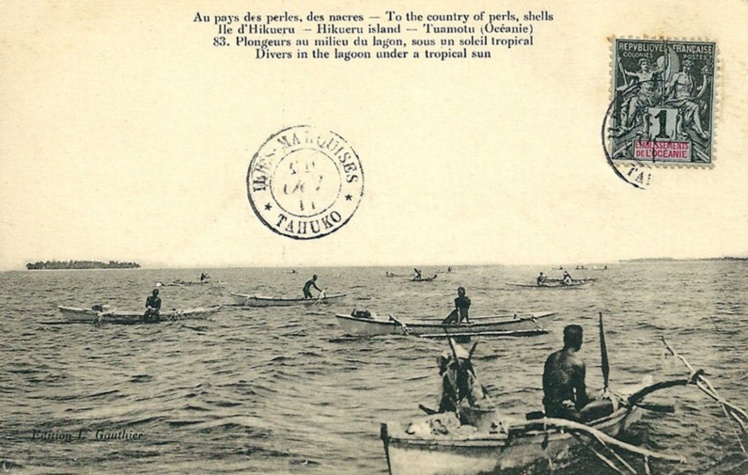 Au pays des perles, des nacres — To the country of perls, shells
Ile d'Hikueru — Hikueru island — Tuamotu (Océanie)
83. Plongeurs au milieu du lagon, sous un soleil tropical
Divers in the lagoon under a tropical sun
REPVBLIQVE FRANÇAISE
COLONIES POSTES
1
ETABLISSEMENTS
DE L'OCÉANIE
ILES-MARQUISES
11
TAHUKO
TA
Edition L. Gauthier